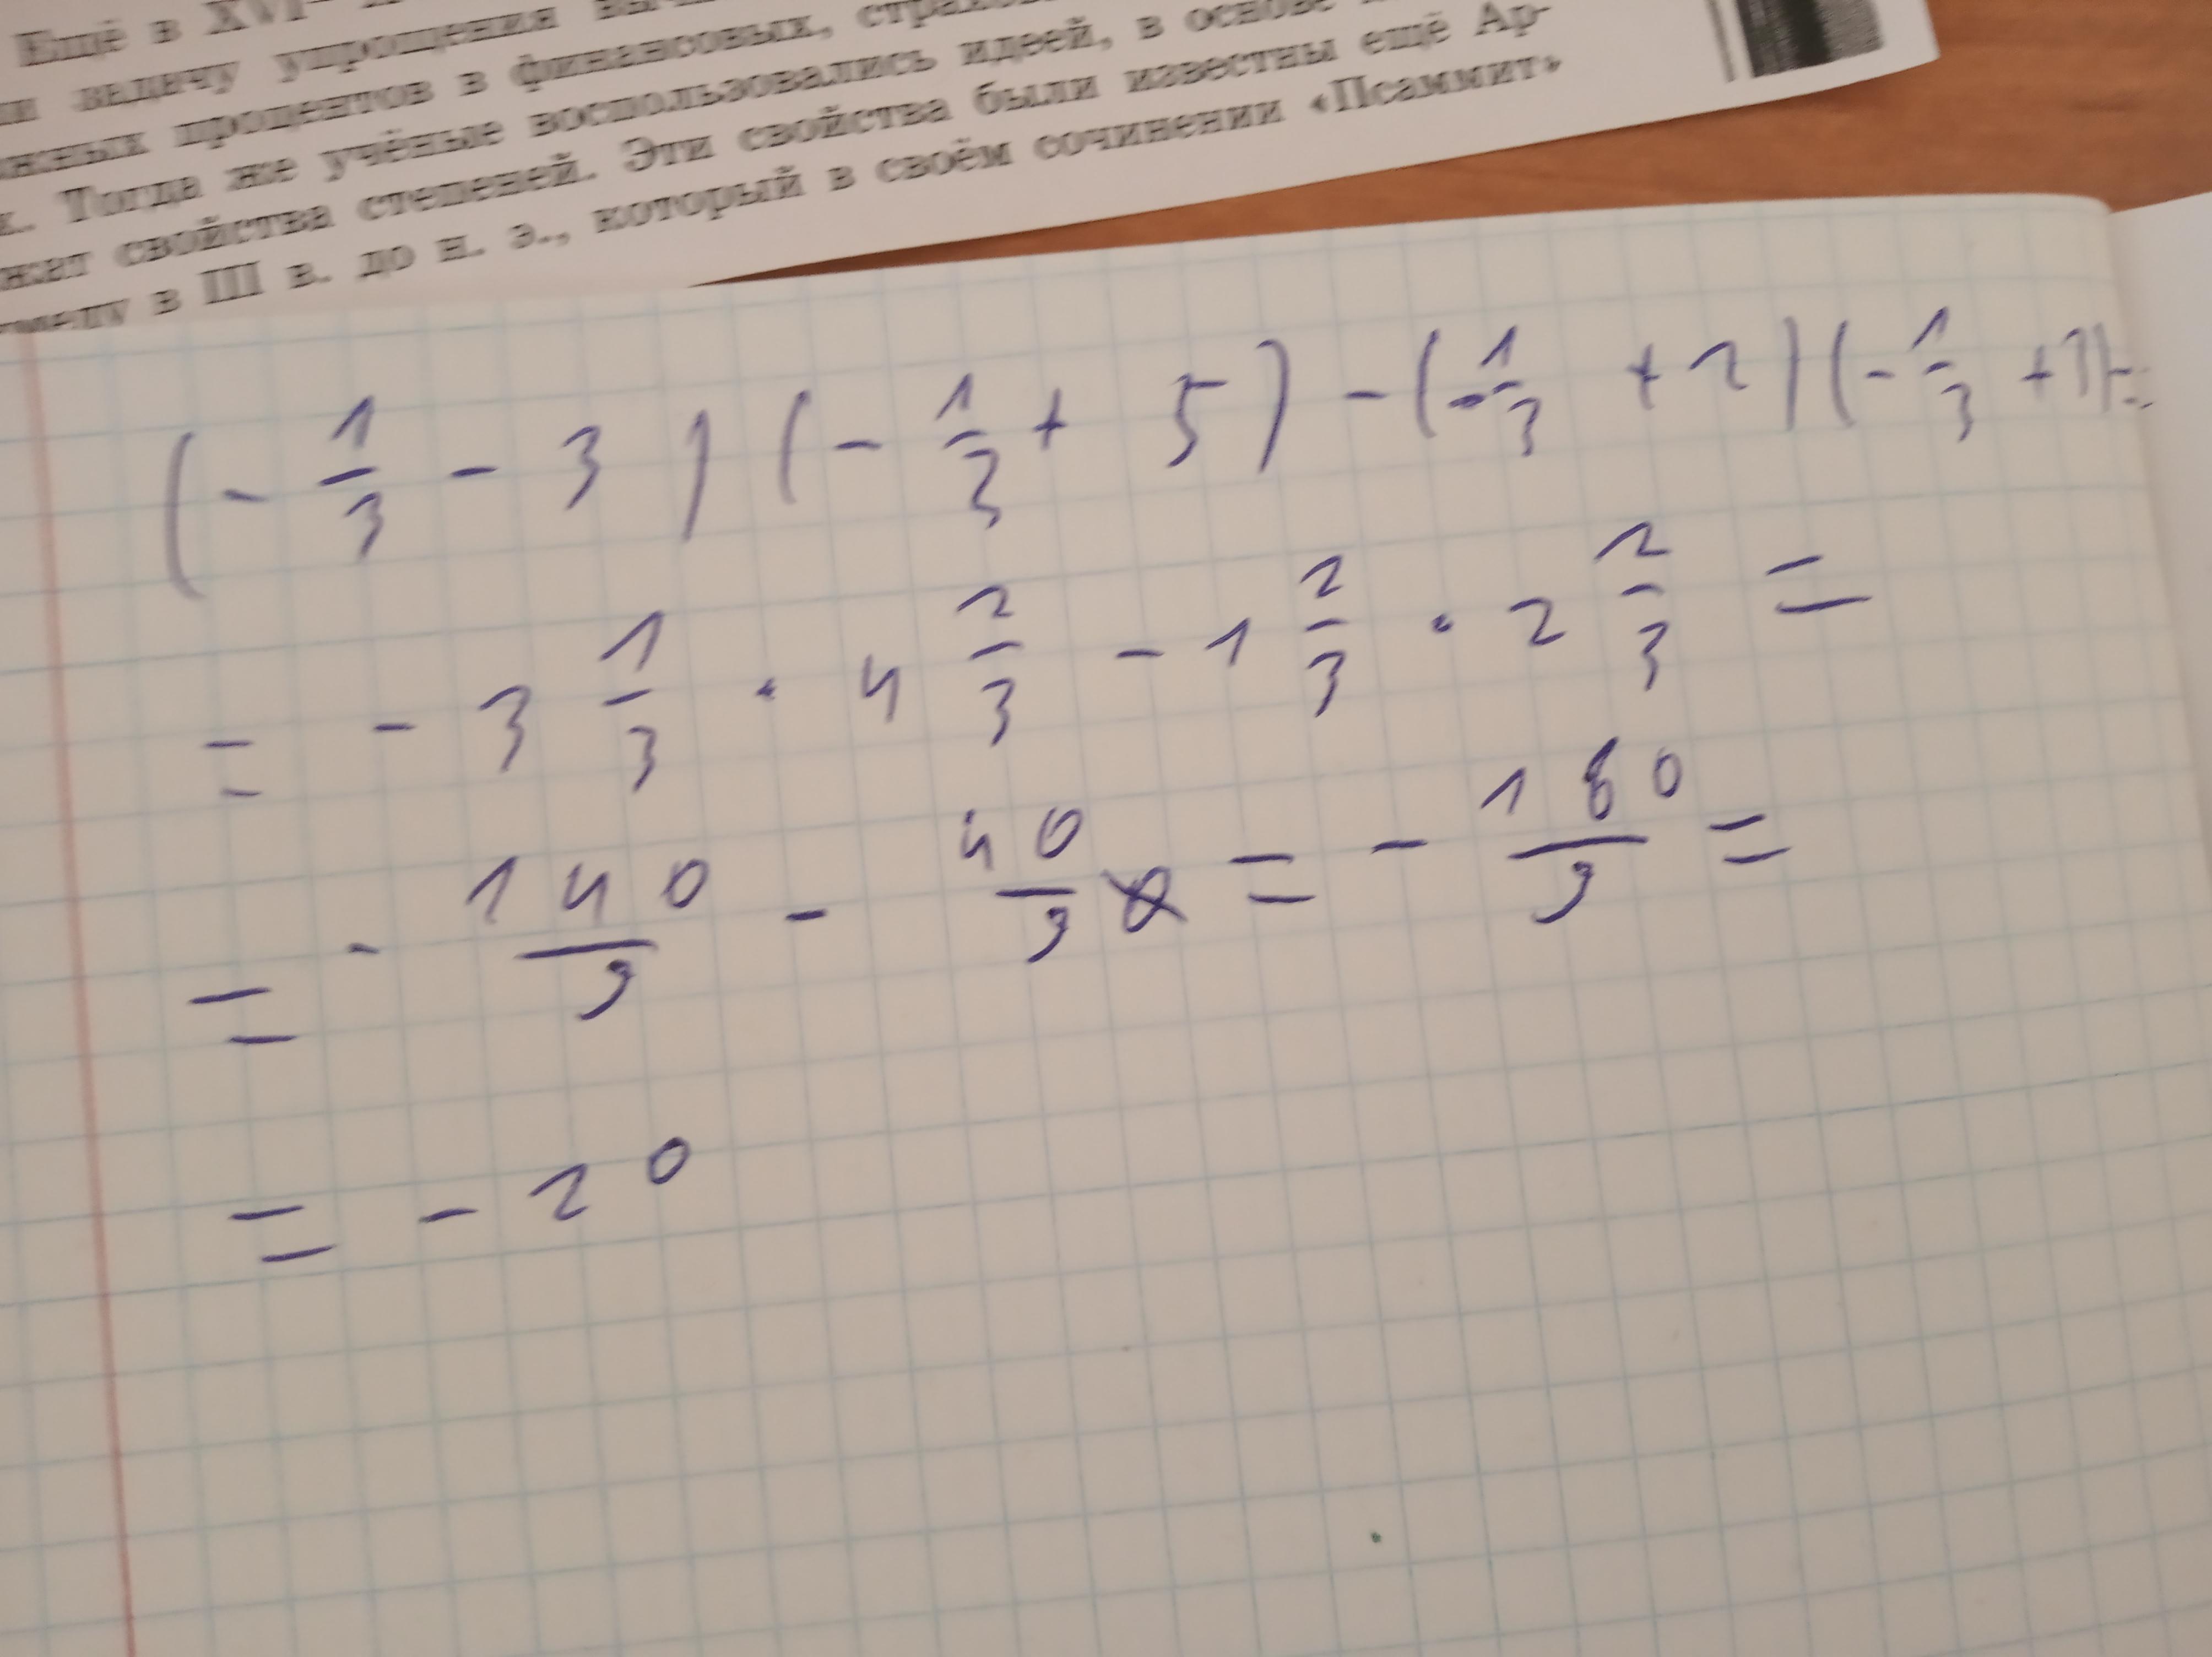 Ещё в XVI-
задачу упрощения
процентов в финансовых,
. Тогда же учёные воспользовались идеей, в основе
свойства степеней. Эти свойства были известны ещё Ар-
в III в. до н. э., который в своём сочинении «Псаммит»
(- 1/3 - 3) (- 1/3 + 5) - (- 1/3 + 2) (- 1/3 +
= - 3 1/3 · 4 2/3 - 1 2/3 · 2 2/3 =
= - 140/9 - 40/9 = - 180/9 =
= - 20